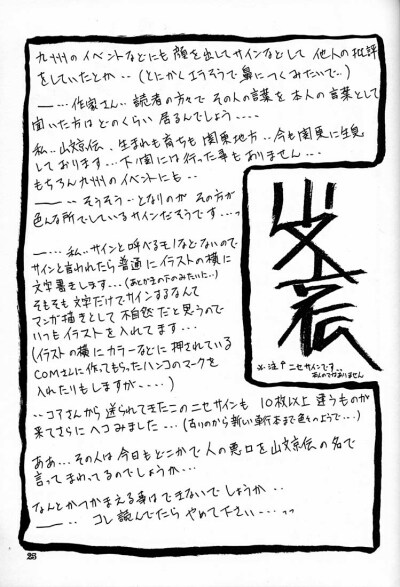 九州のイベントなどにも顔を出してサインなどして 他人の批評
をしていたとか‥(とにかくエラそうで鼻につくみたいで‥)
ー‥‥作家さん‥読者の方々で その人の言葉を本人の言葉として
聞いた方はどのくらい 居るんでしょう‥‥
私‥山文京伝、生まれも育ちも 関東地方‥今も関東に生息
しております‥‥下ノ関には行った事もありません‥‥
もちろん九州のイベントにも‥
ー‥‥そうそう‥となりのが その方が
色んな所でしているサインだそうです‥‥っ
ー‥‥私‥サインと呼べるモノなどないので
サインと言われたら普通にイラストの横に
文字書きします‥‥(あとがきの下のみたいに‥)
そもそも文字だけでサインするなんて
マンガ描きとして 不自然だと思うので
いつもイラストを入れてます‥‥
(イラストの横にカラーなどに押されている
COMさんに作ってもらったハンコのマークを
入れたりもしますが‥‥‥)
‥コアさんから送られてきたこのニセサインも 10枚以上違うものが
来てさらにヘコみました‥‥(古いのから新しい新刊本まで色々のようで‥‥)
ああ‥‥その人は今日もどこかで 人の悪口を山文京伝の名で
言ってまわってるのでしょうか‥‥
なんとかつかまえる事はできないでしょうか‥‥
ー‥‥ コレ読んでたら やめて下さい‥‥っっ
山文京伝
※注↑ニセサインです‥
ホンモノではありません
25